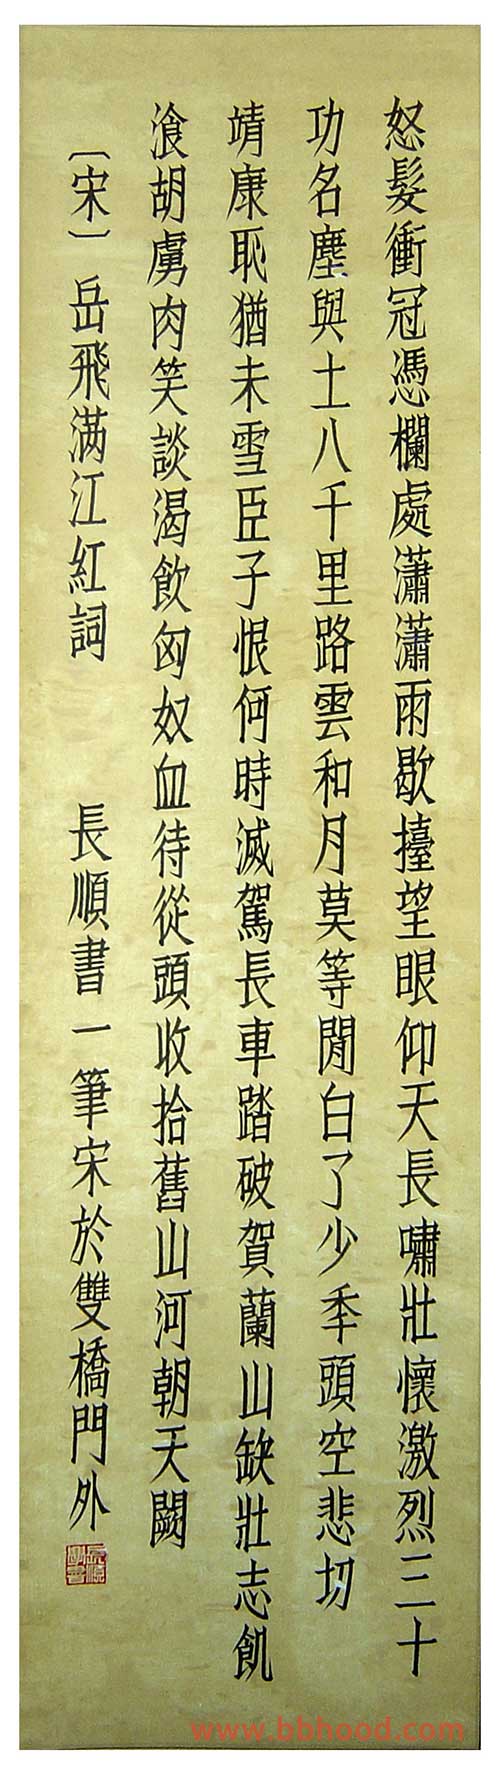 怒髮衝冠憑欄處瀟瀟雨歇擡望眼仰天長嘯壯懷激烈三十
功名塵與土八千里路雲和月莫等閒白了少年頭空悲切
靖康恥猶未雪臣子恨何時滅駕長車踏破賀蘭山缺壯志飢
飡胡虜肉笑談渴飲匈奴血待從頭收拾舊山河朝天闕
〔宋〕岳飛滿江紅詞 長順書一筆宋於雙橋門外
www.bbhood.com